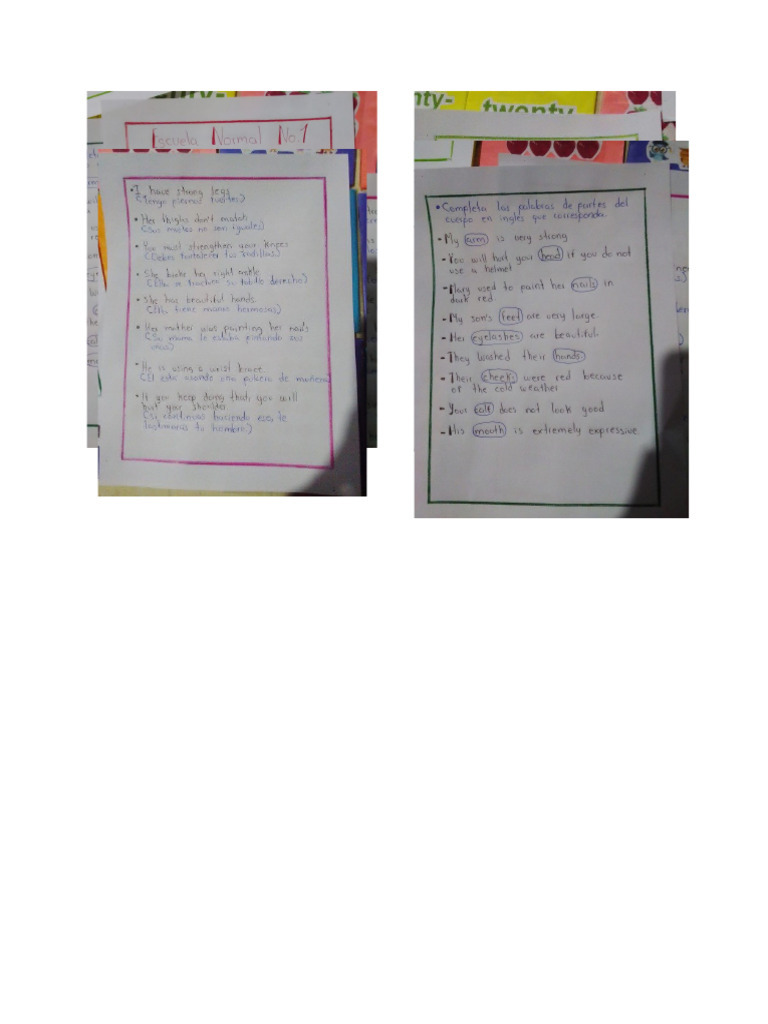 twenty
Escuela Normal No. 1
• I have strong legs
(Tengo piernas fuertes)
• Her thighs don't match
(Sus muslos no son iguales)
• You must strengthen your knees
(Debes fortalecer tus rodillas)
• She broke her right ankle
(Ella se fracturó su tobillo derecho)
• She has beautiful hands
(Ella tiene manos hermosas)
• Her mother was painting her nails
(Su mamá le estaba pintando sus
uñas)
• He is using a wrist brace
(El está usando una pulsera de muñeca)
• If you keep doing that, you will
hurt your shoulder
(Si continuas haciendo eso, te
lastimarás tu hombro)
nty-
twenty
• Completa las palabras de partes del
cuerpo en ingles que corresponda.
- My arm is very strong
- You will hurt you head if you do not
use a helmet
- Mary used to paint her nails in
dark red
- My son's feet are very large
- Her eyelashes are beautiful
- They washed their hands
- Their cheeks were red because
of the cold weather
- Your calf does not look good
- His mouth is extremely expressive